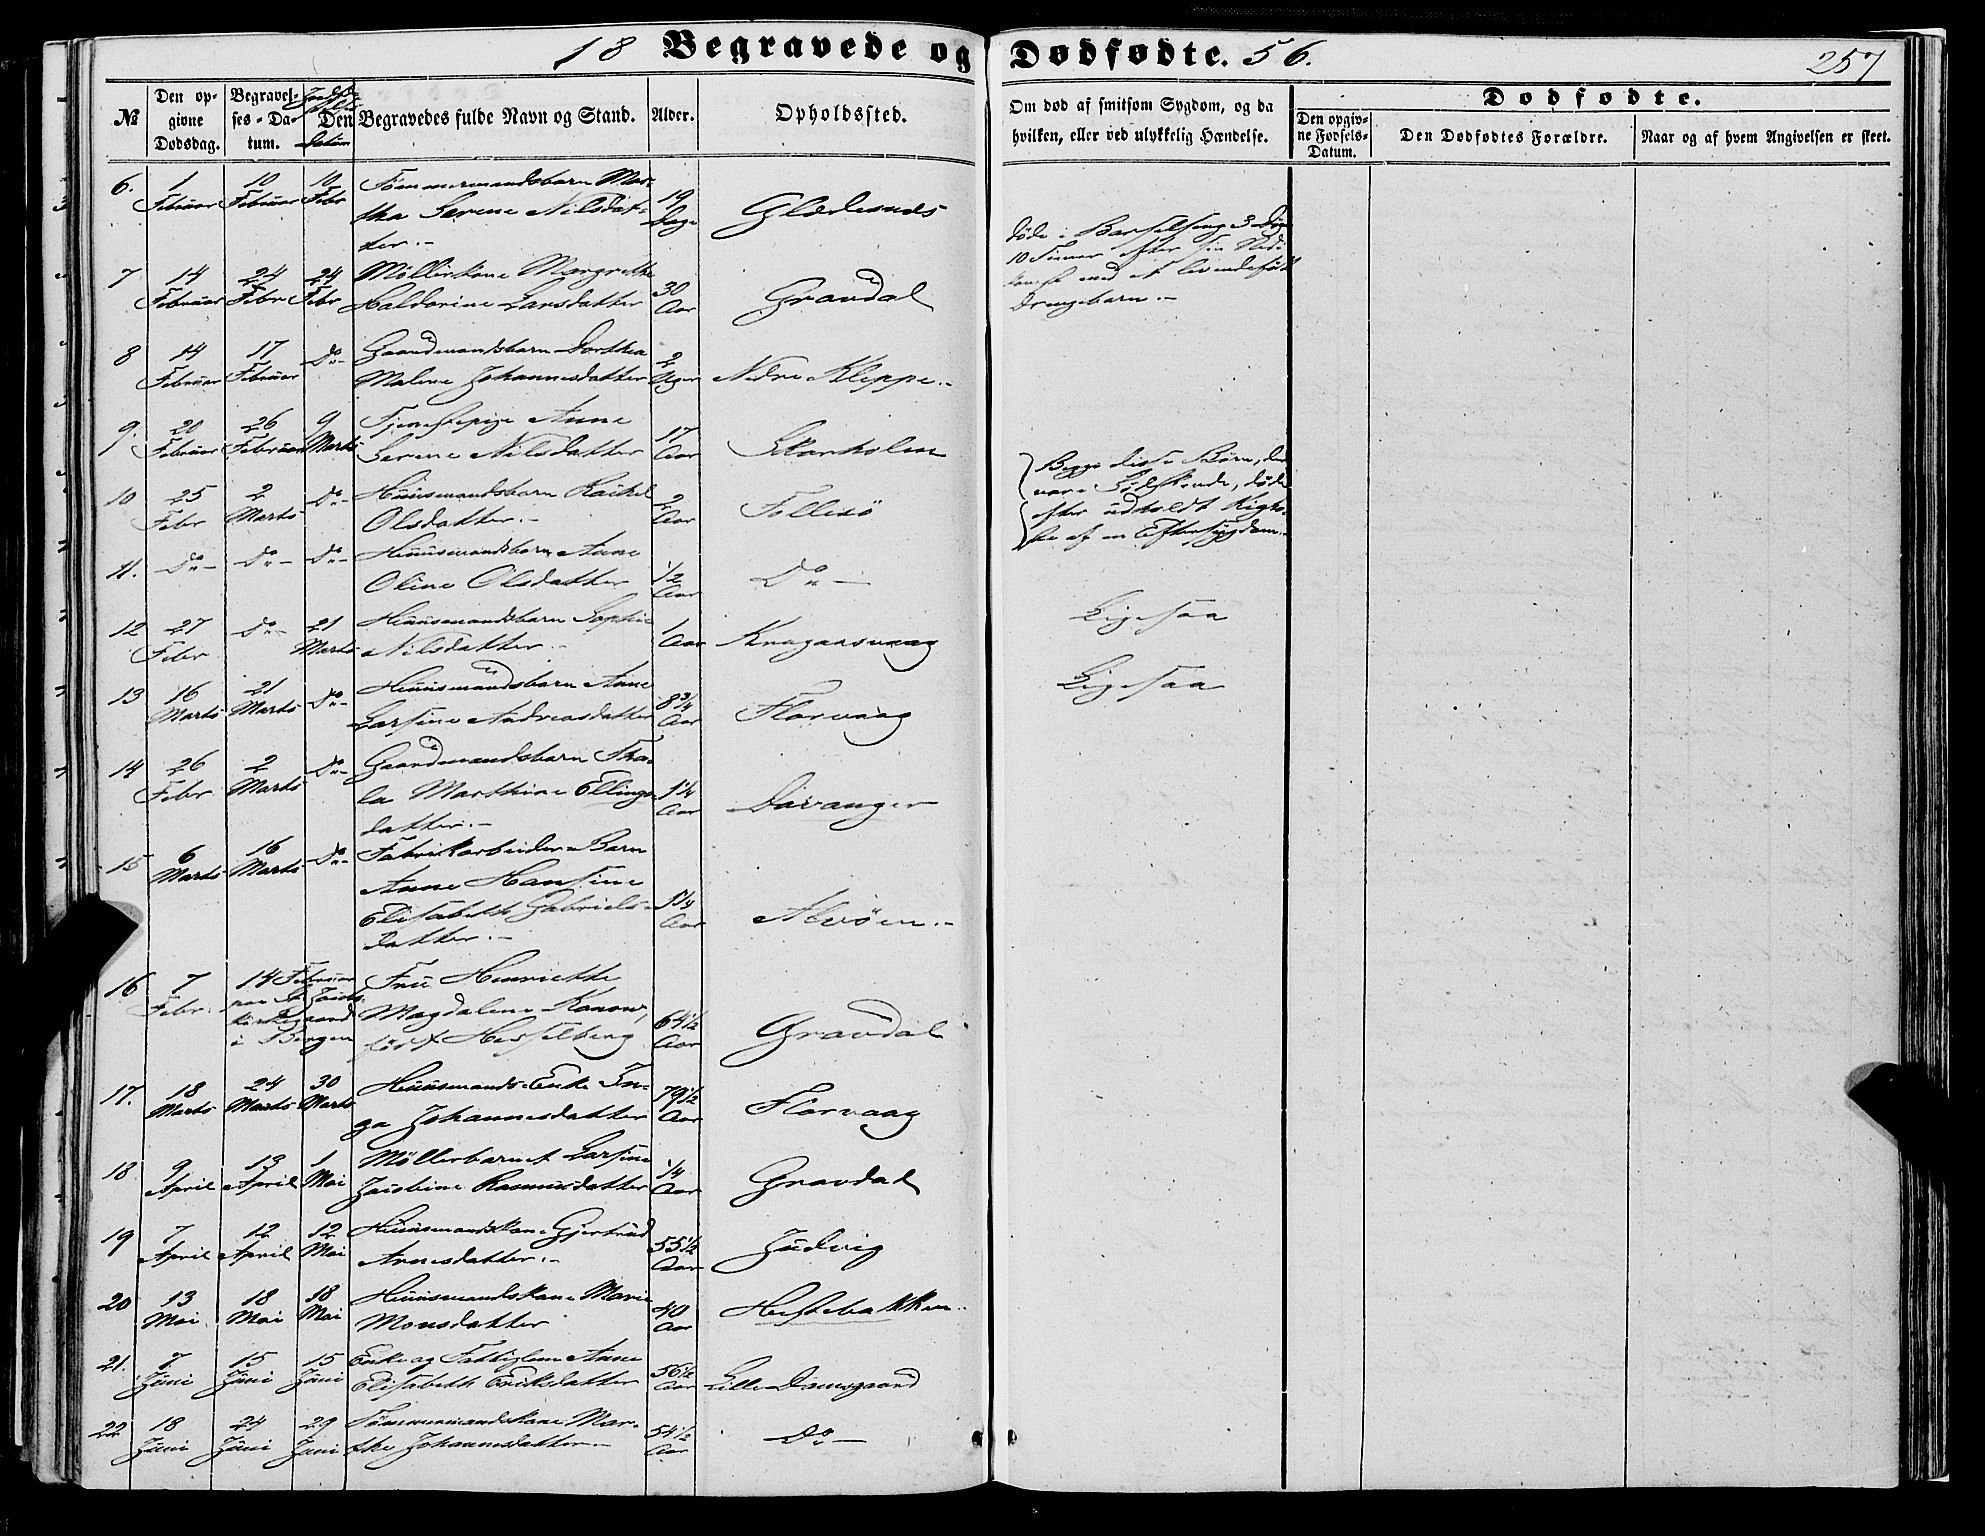 18 Begravede og Dødfødte. 56.
257
№
Den opgivne Dødsdag.
Begravelses-Datum.
Den
Datum
Begravedes fulde Navn og Stand.
Alder.
Opholdssted.
Om død af smitsom Sygdom, og da
hvilken, eller ved ulykkelig Hændelse.
Dødfødte.
Den opgivne Fødsels-Datum.
Den Dødfødtes Forældre.
Naar og af hvem Angivelsen er skeet.
6. 1 Februar 10 Februar 10 Febr
Tømmermandsbarn Mar-
tha Serene Nilsdat-
ter.-
19 Dage
døde i Barselseng 3 Døgn
10 Timer efter sin Ned-
komst med et levendefødt
Drengebarn.-
7 14 Februar 24 Febr 24 Febr
Møllerkone Margrethe
Haldorine Larsdatter
30 Aar Gravdal
8 14 Februar 17 Februar Do-
Gaardmandsbarn Dorthea
Malene Johannesdatter
2 Uger Nedre Kleppe.-
9. 20 Februar 26 Februar 9 Marts
Tjenestepige Anne
Serene Nilsdatter
17 Aar Skarholm
10 25 Febr 2 Marts Do-
Huusmandsbarn Rakhel
Olsdatter.-
2 Aar Follesø
{Begge disse Børn, der
vare Sødskende, døde
efter udholdt Kigho-
ste af en Eftersygdom.-
11. Do- Do- Do-
Huusmandsbarn Anne
Oline Olsdatter
1/2 Aar Do-
12 27 Febr Do- 21 Marts
Huusmandsbarn Sophie
Nilsdatter.-
1 Aar
Ligesaa
13 16 Marts 21 Marts Do-
Huusmandsbarn Anne
Larsine Andreasdatter
8 3/4 Aar Florvaag
Ligesaa
14 26 Febr 2 Marts Do-
Gaardmandsbarn Tha-
la Marthine Ellings-
datter.-
1 1/4 Aar Davanger
15 6 Marts 16 Marts Do-
Fabrikarbeider-Barn
Anne Hansine
Elisabeth Gabriels-
datter.-
Aar Alvøen.-
16 7 Febr. 14 Februar
paa St Jacobs
Kirkegaard
i Bergen
Frü Henriette
Magdalene Konow,
født Hesselberg
64 1/2 Aar Gravdal
17. 18 Marts 24 Marts 30 Marts
Huusmands-Enke In-
ga Johannesdatter
79 1/2 Aar Florvaag
18 9 April 13 April 1 Mai
Møllerbarnet Larsine
Jacobine Rasmusdatter
1/4 Aar Gravdal
19 7 April 12 April 12 Mai
Huusmandskone Gjertrud
Arnesdatter.-
55 1/2 Aar
20 13 Mai 18 Mai 18 Mai
Huusmandskone Marie
Monsdatter
40 Aar Hestebakken.
21. 7 Juni 15 Juni 15 Juni
Enke og Fattiglem Anne
Elisabeth Eriksdatter
56 1/2 Aar Lille Damsgaard
22 18 Juni 24 Juni 29 Juni
Tømmermandskone Mar-
the Johannesdatter.-
54 1/2 Aar Do-